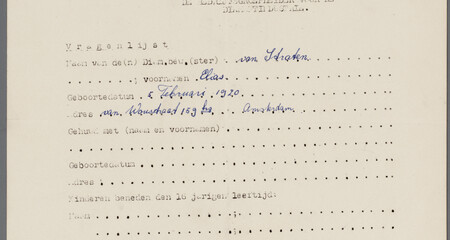 Vragenlijst
Naam van de(n) Dienbew.(ster) van Straten
voornamen Elias
Geboortedatum 2 Februari 1920
Adres van Woustraat 159 Amsterdam
Gehuwd met (naam en voornamen)
Geboortedatum
Adres :
Kinderen beneden den 18 jarigen leeftijd:
Naam